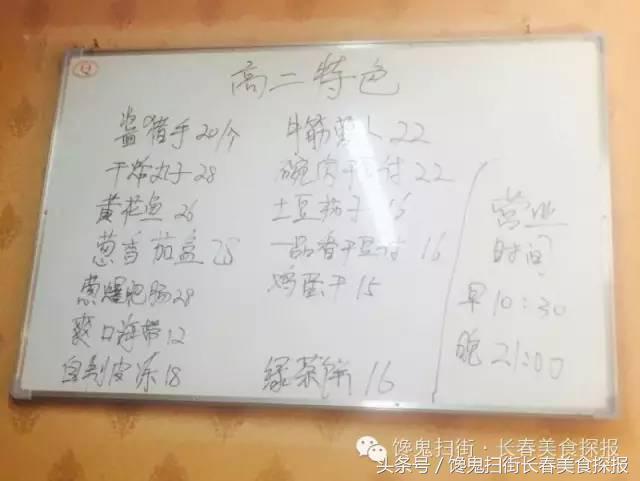 高二特色
盐焗猪手 20/个
干炸丸子 28
黄花鱼 26
葱香茄盒 25
葱爆肥肠 28
爽口海带 12
自制皮冻 18
牛筋 22
碗肉干豆付 22
土豆茄子 16
一品香干豆付 16
鸡蛋干 15
绿茶饼 16
营业
时间
早 10:30
晚 21:00
馋鬼扫街·长春美食探报
头条号/馋鬼扫街长春美食探报